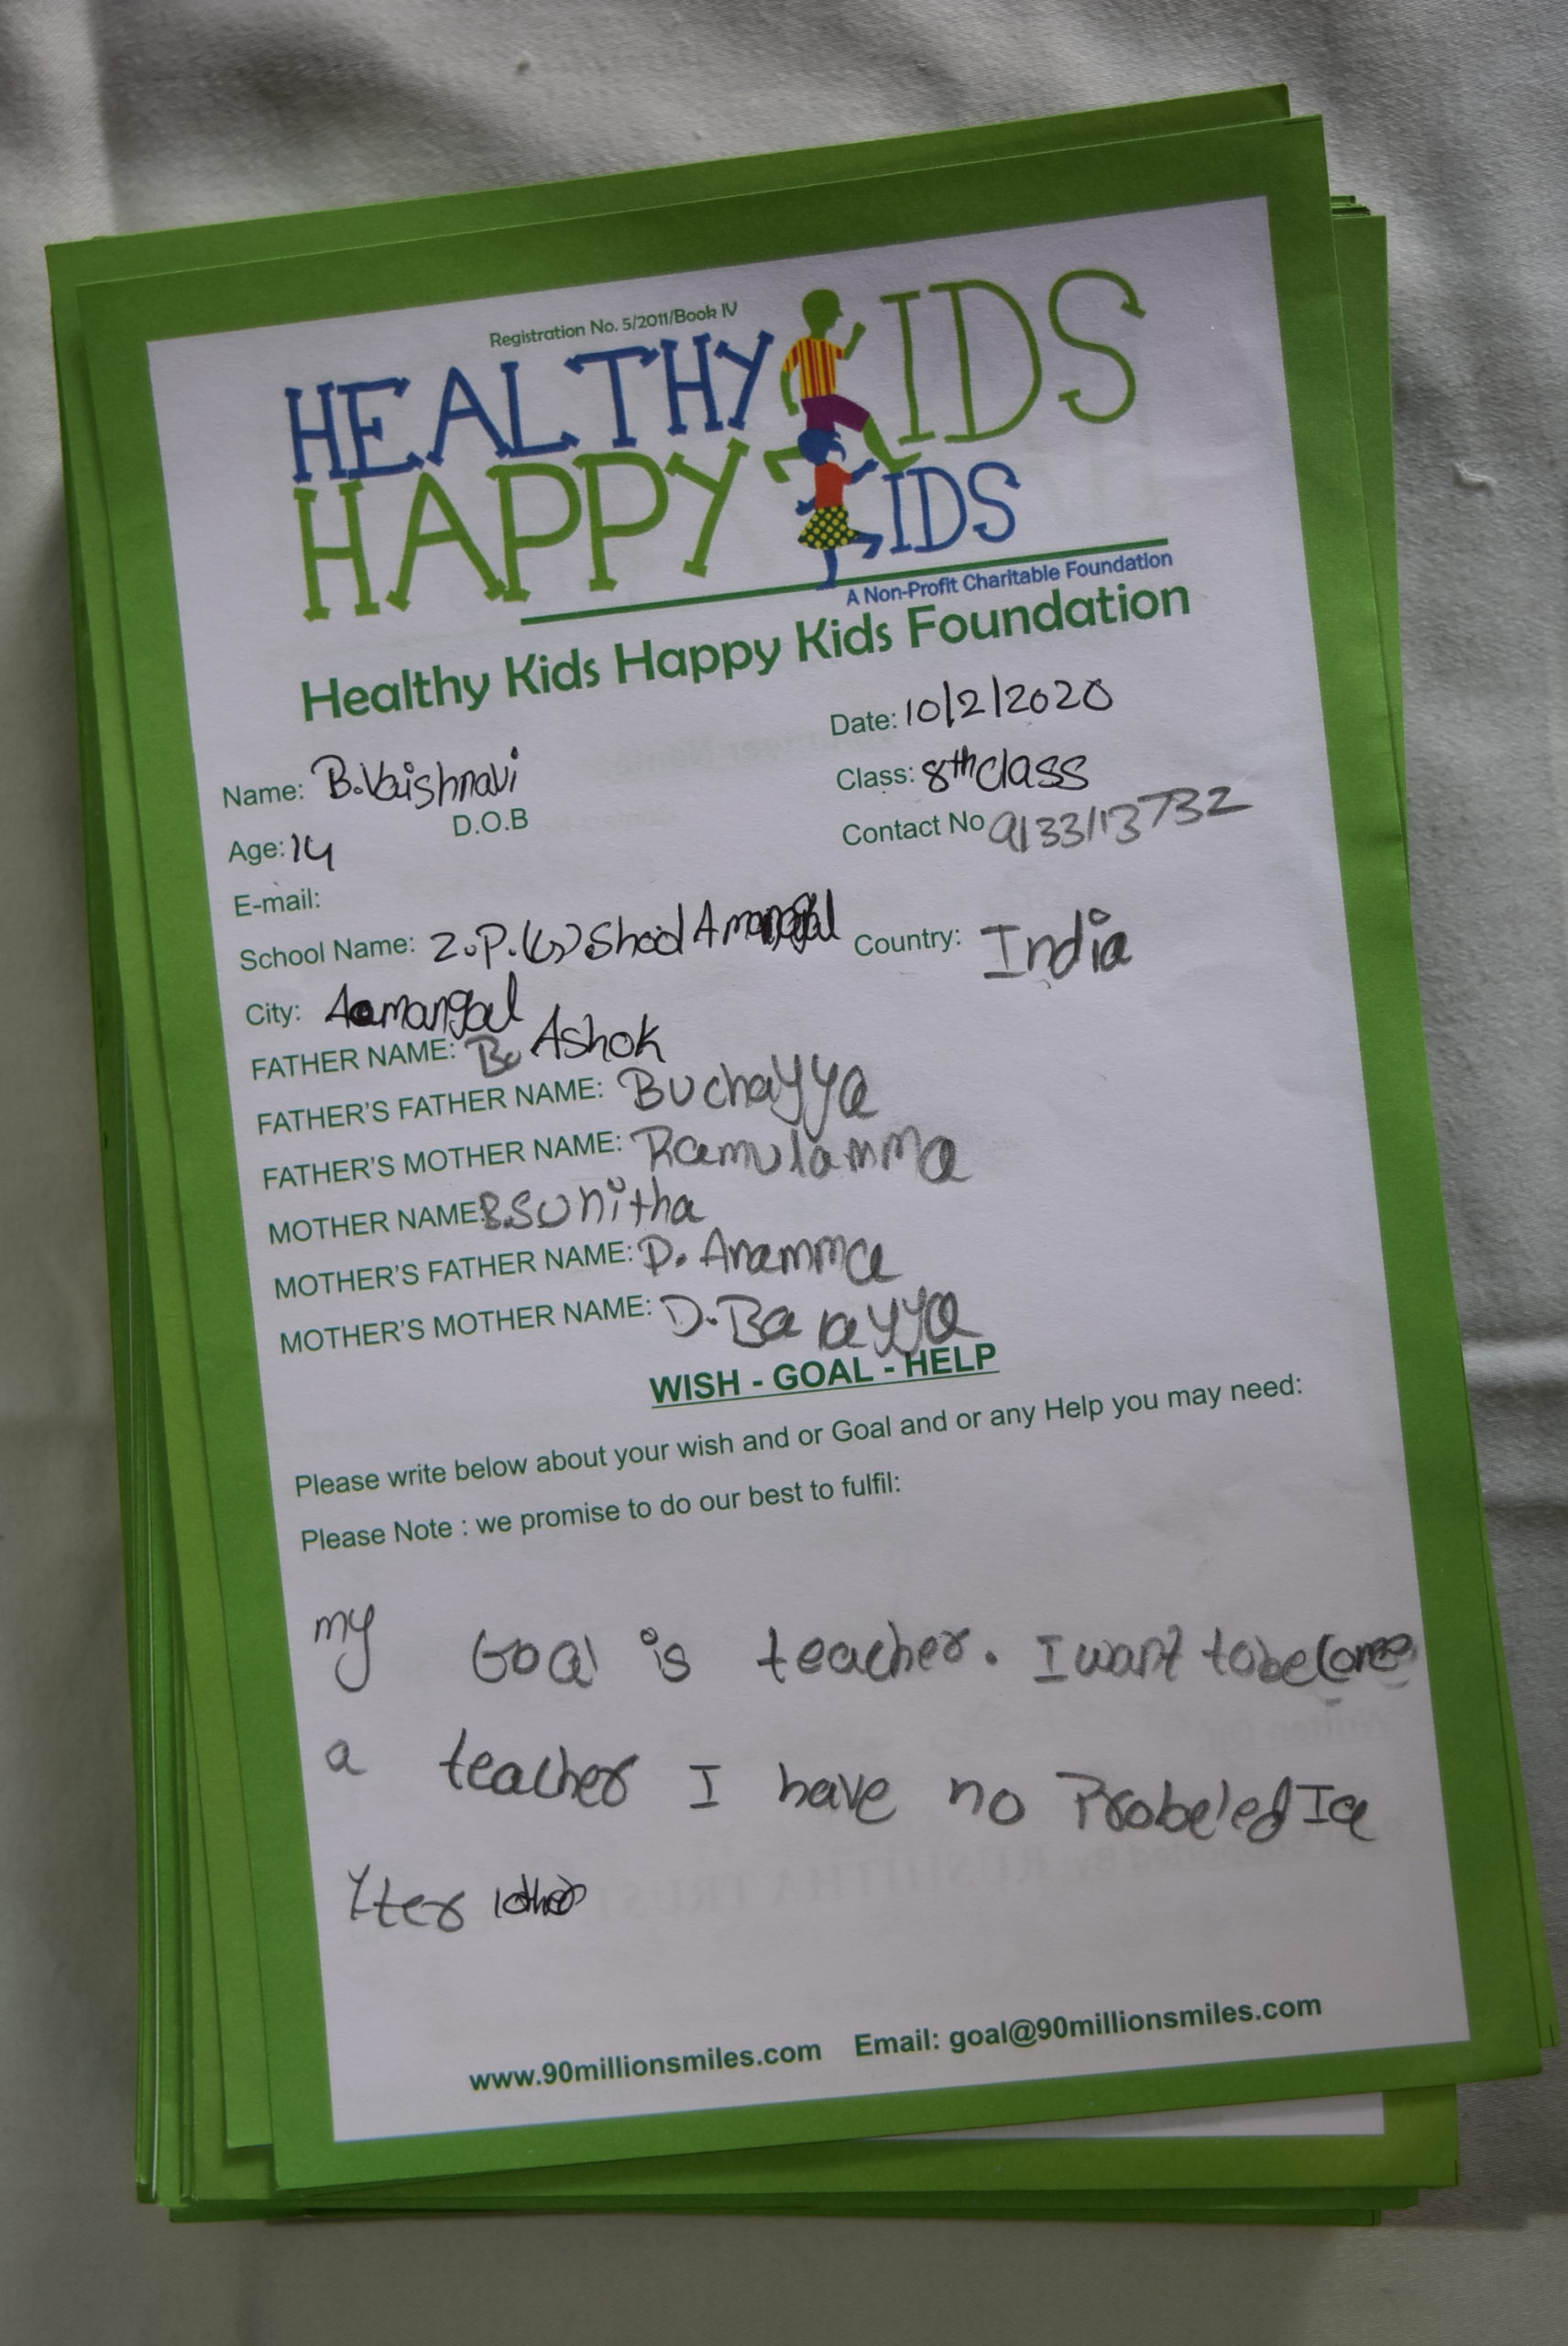 Registration No. 5/2011/Book IV
HEALTHY KIDS
HAPPY KIDS
A Non-Profit Charitable Foundation
Healthy Kids Happy Kids Foundation
Date: 10/2/2020
Name: B.Vaishnavi
Class: 8th class
D.O.B
Age: 14
Contact No 9133113732
E-mail:
School Name: Z.P.(G).Shool Amangal
Country: India
City: Aamangal
FATHER NAME: B. Ashok
FATHER'S FATHER NAME: Buchayya
FATHER'S MOTHER NAME: Ramulamma
MOTHER NAME: B.Sunitha
MOTHER'S FATHER NAME: D. Anamma
MOTHER'S MOTHER NAME: D.
WISH - GOAL - HELP
Please write below about your wish and or Goal and or any Help you may need:
Please Note : we promise to do our best to fulfil:
my Goal is teacher. I want to become
a teacher I have no
www.90millionsmiles.com Email: goal@90millionsmiles.com